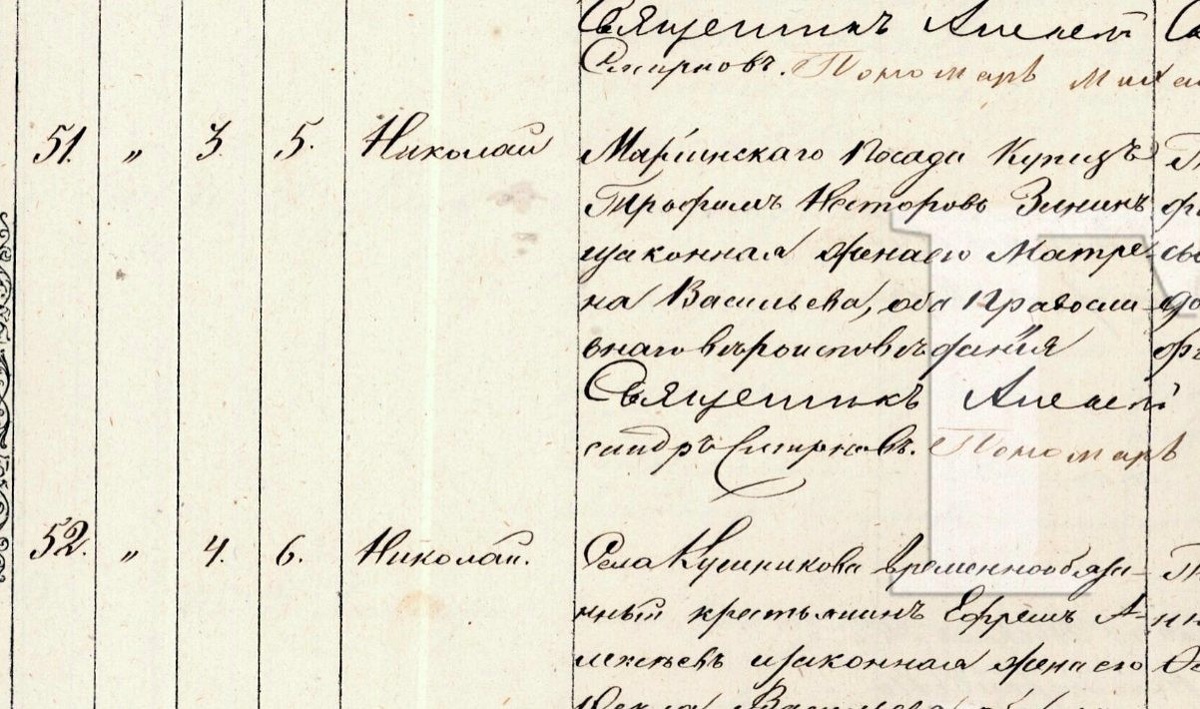 Священникъ Алексан
Смирновъ. Пономарь Миха
51. " 3. 5. Николай
Маріинскаго Посада Купецъ
Трофимъ Несторовъ Зининъ
и законная жена его Матре-
на Васильева, оба Православ-
внаго вѣроисповѣданія
Священникъ Алек
сандръ Смирновъ. Пономарь
52. " 4. 6. Николай.
Села Кушникова временнообяза-
нный крестьянинъ Ефремъ А-
лексѣевъ и законная жена его
Васильева